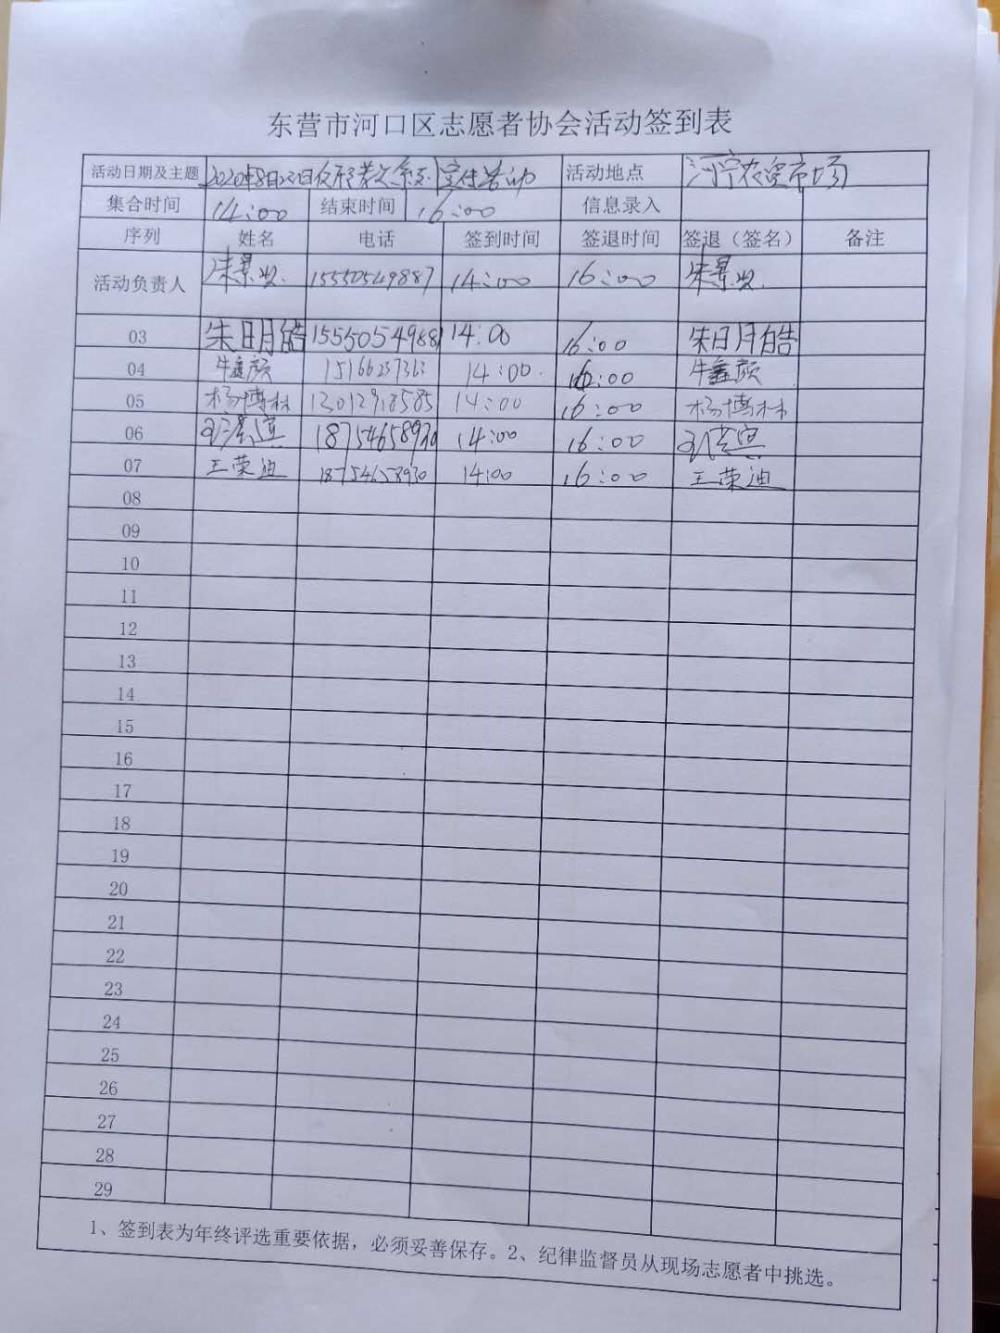 东营市河口区志愿者协会活动签到表
活动日期及主题 2020年8月 宣传活动 活动地点 河宁农贸市场
集合时间 14:00 结束时间 16:00 信息录入
序列 姓名 电话 签到时间 签退时间 签退（签名） 备注
活动负责人 朱景 15550549887 14:00 16:00 朱景
03 朱明皓 1555054988 14:00 16:00 朱明皓
04 牛鑫颜 15166237363 14:00 16:00 牛鑫颜
05 杨博林 13012918585 14:00 16:00 杨博林
06 18754658930 14:00 16:00
07 王荣迪 18754658930 14:00 16:00 王荣迪
08
09
10
11
12
13
14
15
16
17
18
19
20
21
22
23
24
25
26
27
28
29
1、签到表为年终评选重要依据，必须妥善保存。2、纪律监督员从现场志愿者中挑选。